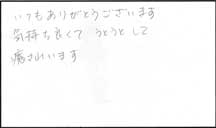 いつもありがとうございます
気持ち良くて うとうと して
癒されます